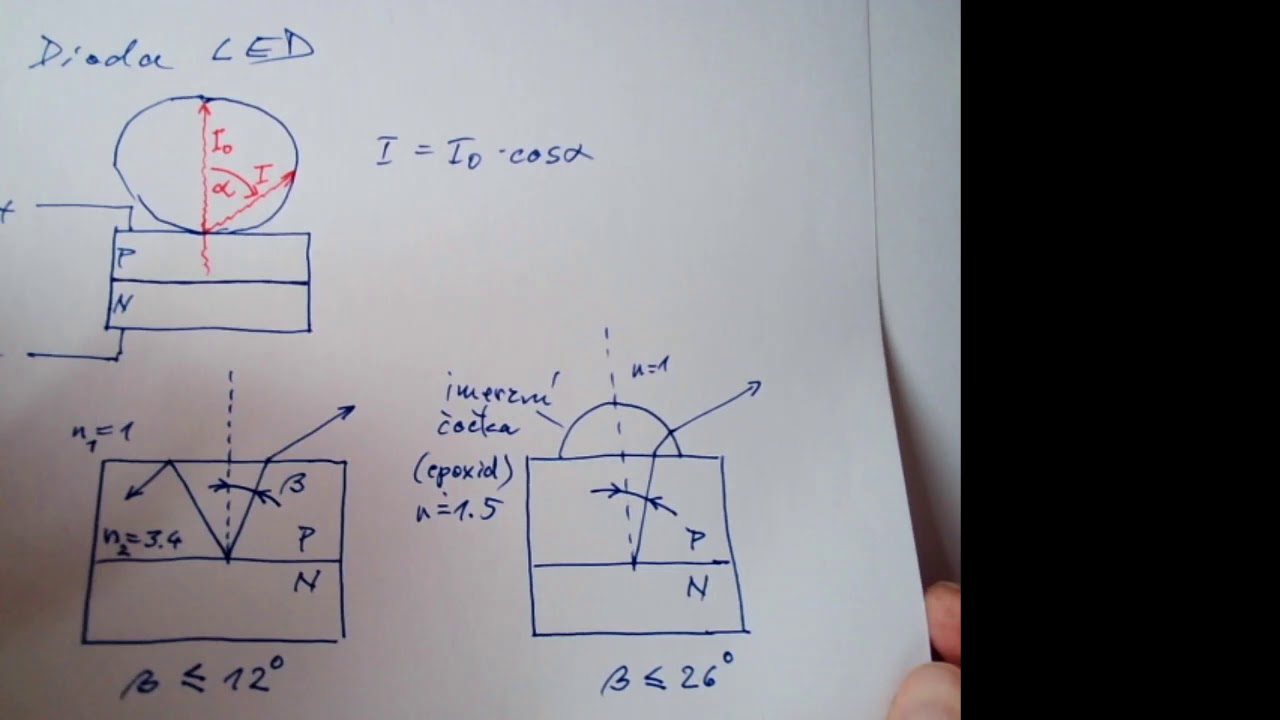 Dioda LED
I₀
I = I₀ · cosα
α
I
+
P
N
-
n₁=1
β
n₂=3.4
P
N
β ≤ 12°
n=1
imerzní
čočka
(epoxid)
n=1.5
P
N
β ≤ 26°